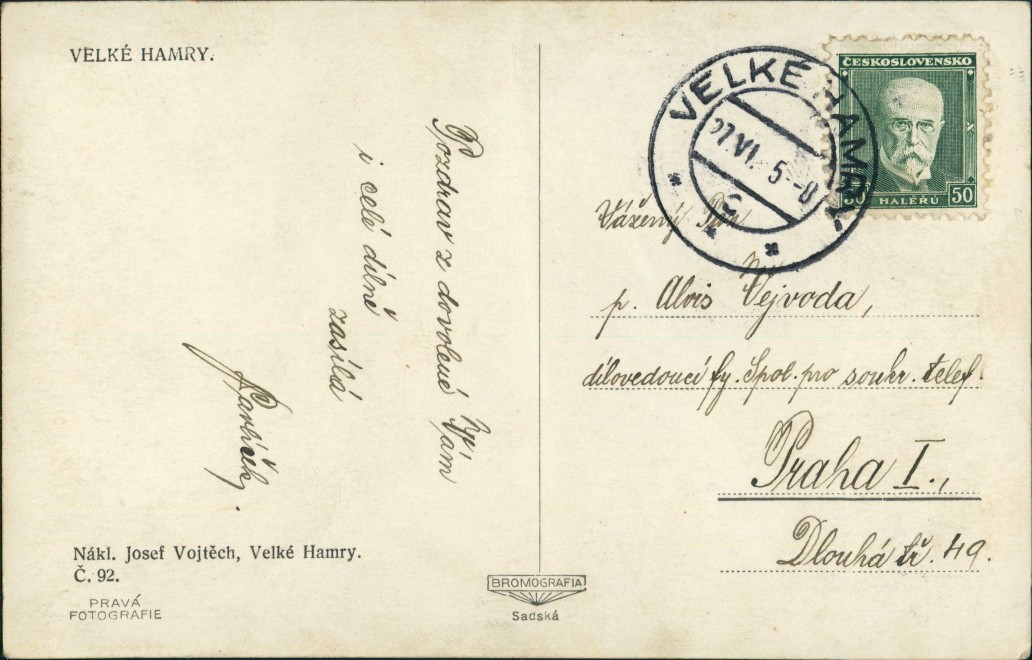 VELKÉ HAMRY.
Pozdrav z dovolené Vám
i celé dílně
zasílá
Nákl. Josef Vojtěch, Velké Hamry.
Č. 92.
PRAVÁ
FOTOGRAFIE
BROMOGRAFIA
Sadská
VELKÉ HAMRY
27.VI.
ČESKOSLOVENSKO
50 HALÉŘŮ 50
Vážený Pan
p. Alois Vejvoda,
dílovedoucí fy. Spol. pro soukr. telef.
Praha I.,
Dlouhá tř. 49.